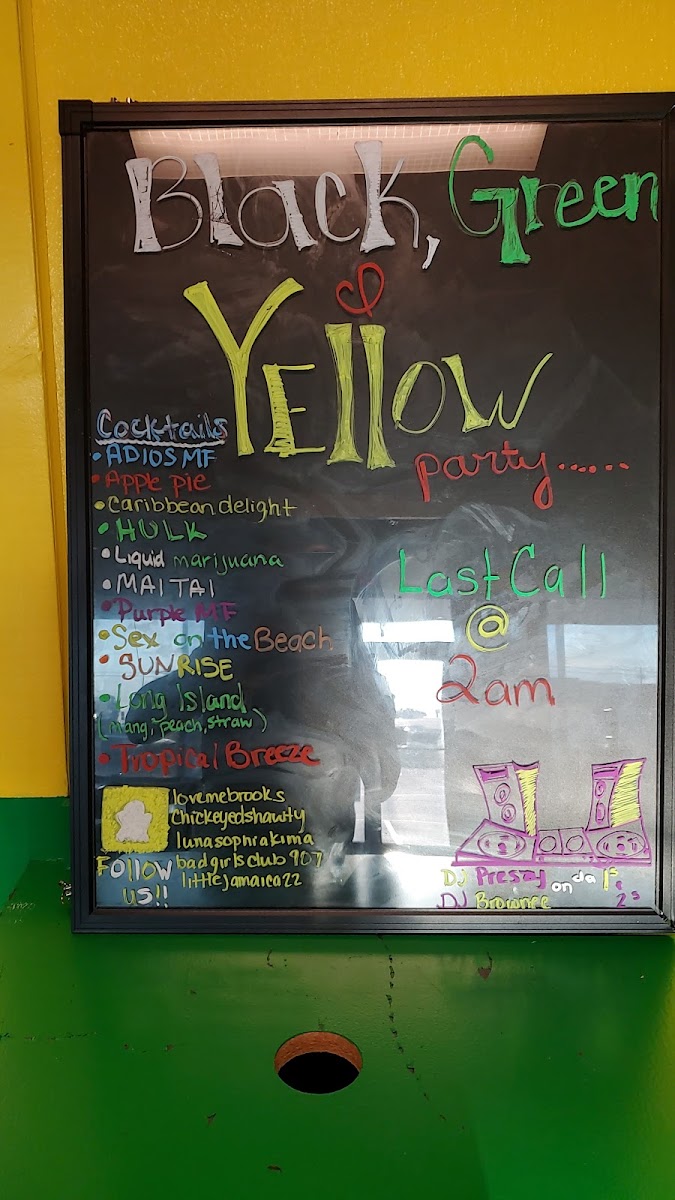 Black, Green
Yellow
party......
Cocktails
• ADIOS MF
• Apple pie
• Caribbean delight
• HULK
• Liquid marijuana
• MAI TAI
• Purple MF
• Sex on the Beach
• SUNRISE
• Long Island
(mang, peach, straw)
• Tropical Breeze
Last Call
@
2am
Follow
us!!
lovemebrooks
Chickeyedshawty
lunasophrakima
badgirlsclub907
littlejamaica22
DJ Presay
DJ Brownee
on da 1s
2s